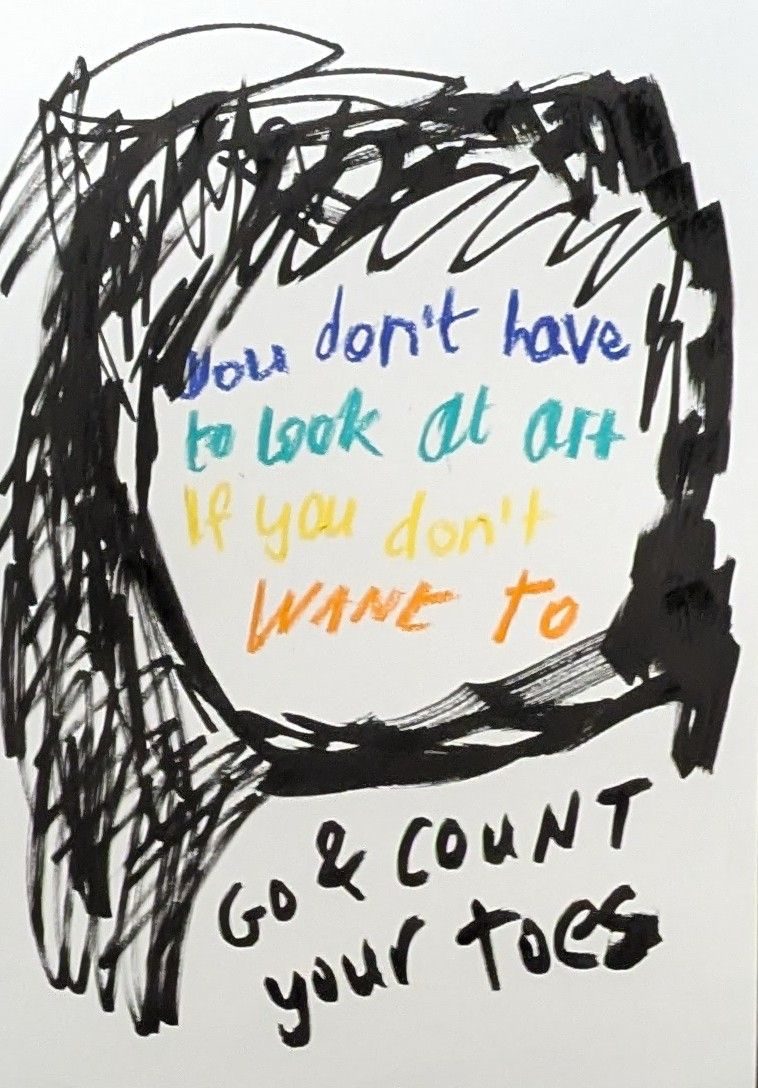 you don't have
to look at art
If you don't
WANT TO
GO & COUNT
your toes